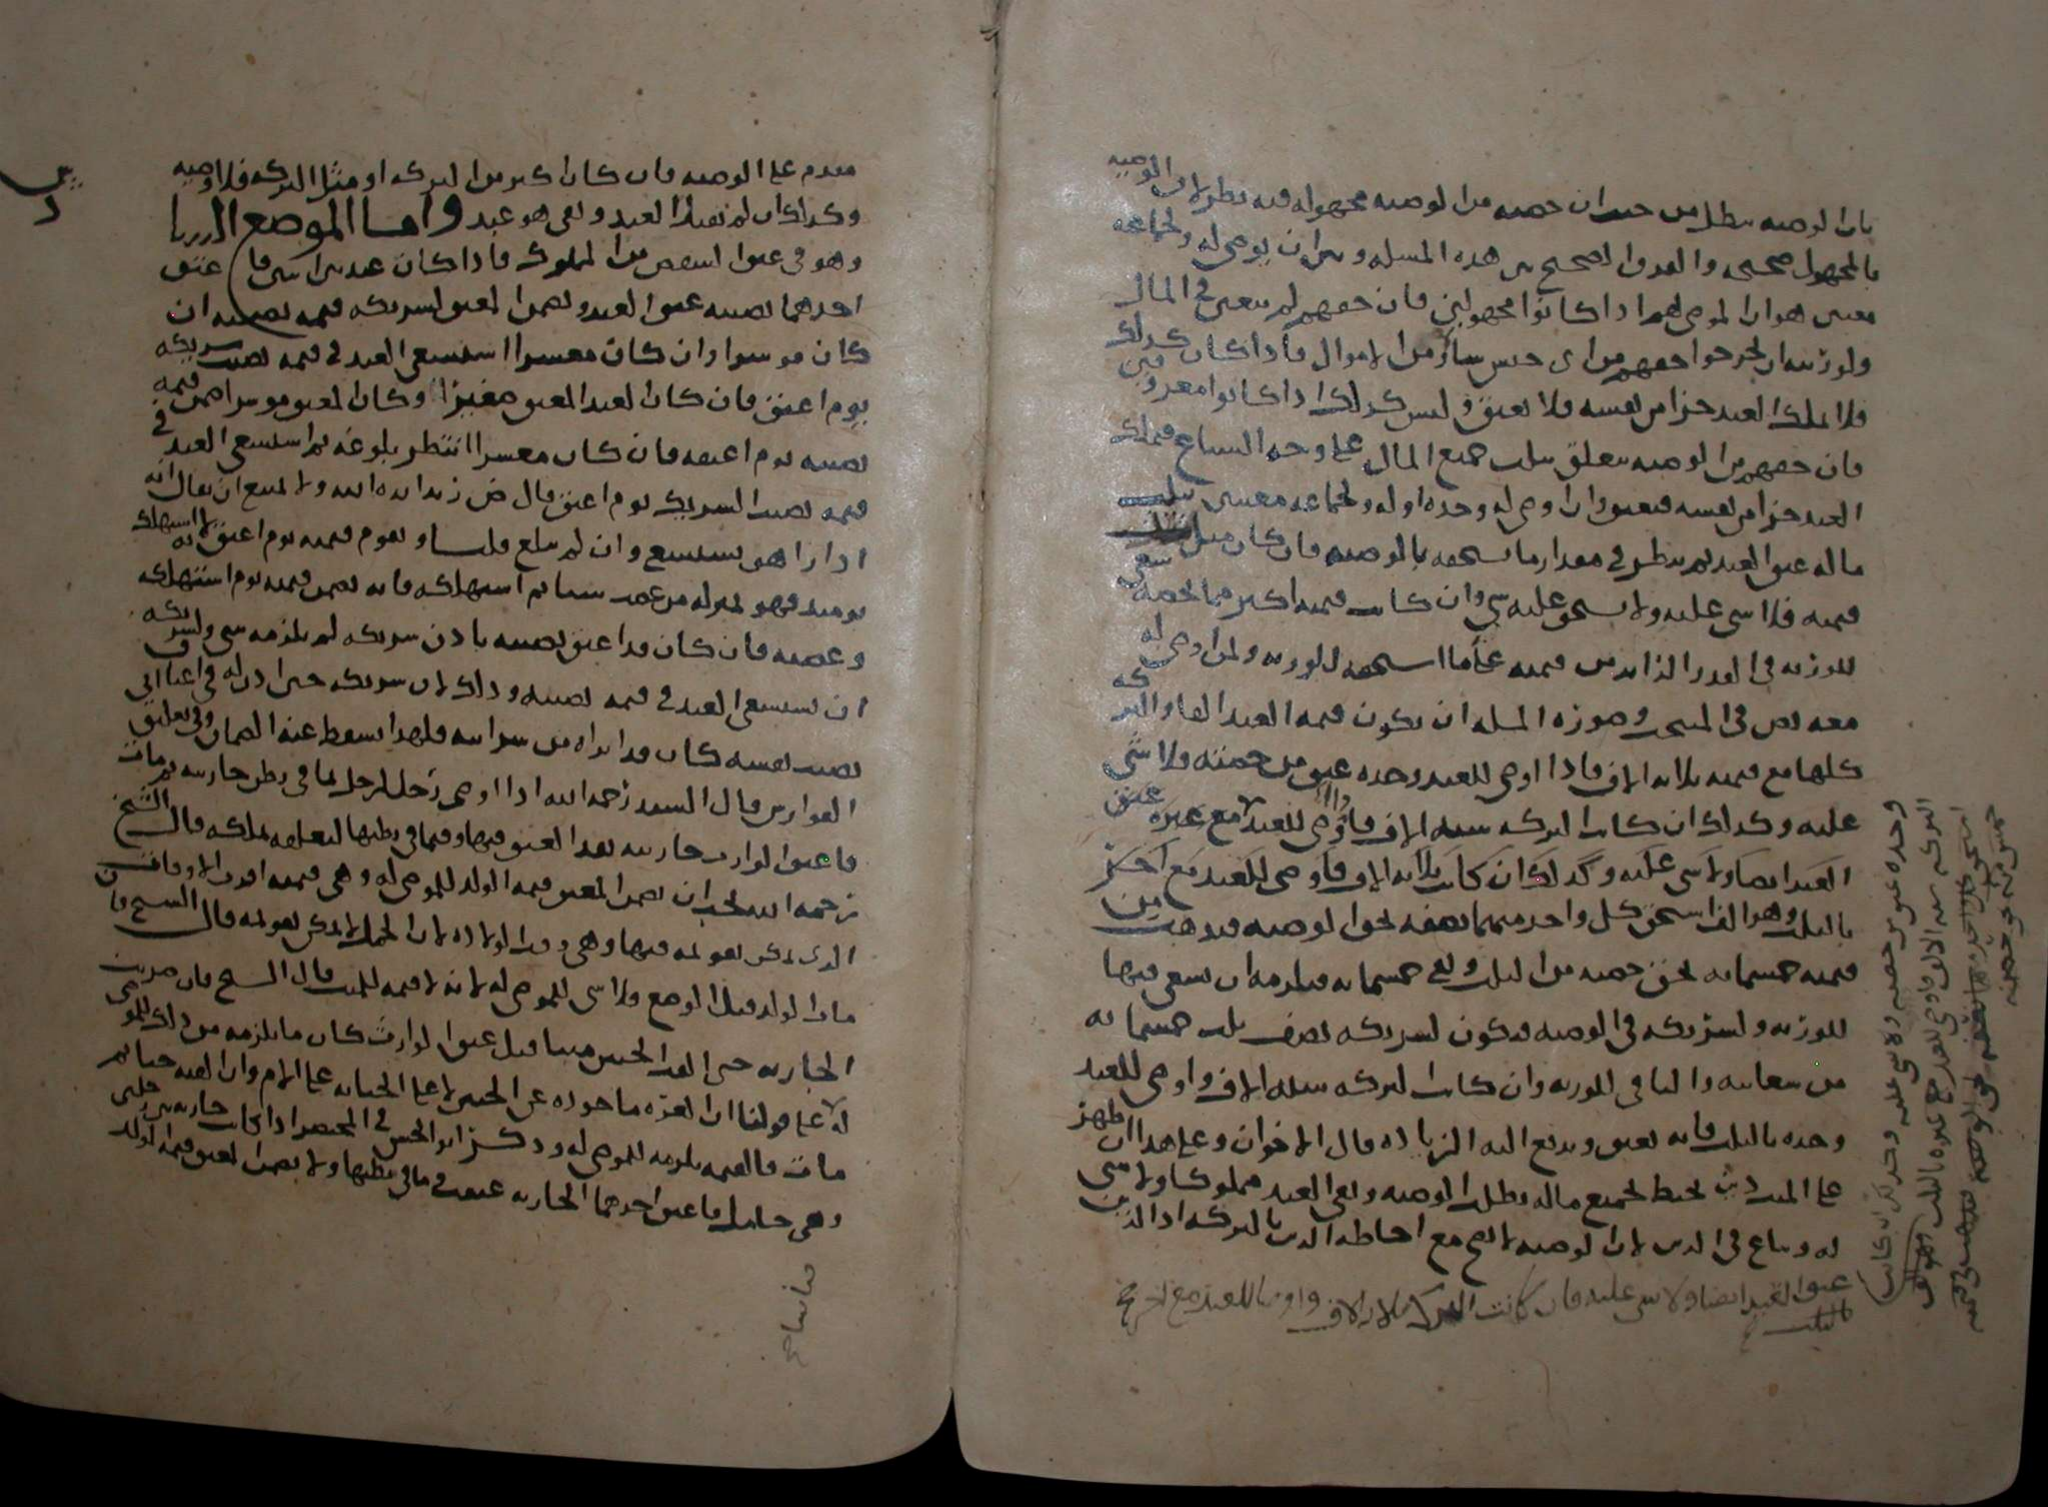 بان الوصيه تبطل من حيث ان حصته من الوصيه مجهوله فيه نظر لان الوصيه
بالمجهول صحيحه والفرق الصحيح بين هذه المسله وبين ان يوصى له ولجماعه
معينين هو ان الموصى لهم اذا كانوا مجهولين فان حقهم لم يتعين في المال
ولورثته ان يخرجوا حقهم من اى جنس سائر من الاموال فاذا كان كذلك
فلا يملك العبد جزا من نفسه فلا يعتق وليس كذلك اذا كانوا معروفين
فان حقهم من الوصيه يتعلق بثلث جميع المال على وجه الشياع فيملك
العبد جزا من نفسه فيعتق وان اوصى له وحده او له ولجماعه معينين بثلث
ماله عتق العبد ثم ينظر في مقدار ما يستحقه بالوصيه فان كان مثل
قيمته فلا شى عليه ولا يستحق عليه شي وان كانت قيمته اكثر مما يخصه سعى
للورثه في القدر الزايد من قيمته على ما استحقه للورثه ولمن اوصى له
معه نص في المنتخب وصورة المسله ان يكون قيمه العبد الفا والتركه
كلها مع قيمته ثلاثه الاف فاذا اوصى للعبد وحده عتق من حصته ولا شى
عليه وكذلك ان كانت التركه سته الاف فاوصى للعبد مع غيره عتق
العبد ايضا ولا شى عليه وكذلك ان كانت ثلاثه الاف فاوصى للعبد مع اخر
بالثلث وهو الف استحق كل واحد منهما نصفه بحق الوصيه فيذهب من
قيمته خمسمايه بحق حصته من الثلث وبقى خمسمايه فيلزمه ان يسعى فيها
للورثه ولشريكه في الوصيه فيكون لشريكه نصف ثلث خمسمايه
من سعايته والباقي للورثه وان كانت التركه سته الاف واوصى للعبد
وحده بالثلث فانه يعتق ويدفع اليه الزياده قال الاخوان وعلى هذا ان ظهر
على الميت دين يحيط بجميع ماله بطلت الوصيه وبقى العبد مملوكا ولا شى
له ويباع في الدين لان الوصيه لا تصح مع احاطه الدين بالتركه اذ الدين
عتق العبد ايضا ولا شى عليه فان كانت التركة ثلاثه الاف واوصا للعبد مع اخر
بالثلث
وحده عتق من حصته ولا شى عليه وكذلك ان كانت
التركه سته الاف فاوصى للعبد مع غيره بالثلث وهو الف
استحق كل واحد منهما نصفه بحق الوصيه
خمس مايه بحق حصته
مقدم على الوصيه فان كان اكثر من التركه او مثل التركه فلا وصيه
وكذلك ان لم يقبل العبد وبقى هو عبد واما الموضع الرابع
وهو في عتق البعض من المملوك فاذا كان عبد بين اثنين فاعتق
احدهما نصيبه عتق العبد وضمن المعتق لشريكه قيمه نصيبه ان
كان موسرا وان كان معسرا استسعى العبد في قيمه نصيب شريكه
يوم اعتق فان كان العبد المعتق صغيرا وكان المعتق موسرا ضمن قيمه
نصيبه يوم اعتقه فان كان معسرا انتظر بلوغه ثم استسعى العبد في
قيمه نصيب الشريك يوم اعتق قال ض زيد ايده الله ولا يمتنع ان يقال انه
اذا راهق يستسعى وان لم يبلغ قلنا ويقوم قيمته يوم اعتق لانه استهلك
يوميذ فهو بمنزله من غصب شيا ثم استهلكه فانه يضمن قيمته يوم استهلكه
وغصبه فان كان قد اعتق نصيبه باذن شريكه لم يلزمه شى ولشريكه
ان يستسعى العبد في قيمه نصيبه وذلك لان شريكه حين اذن له في اعتاق
نصيب نفسه كان قد ابراه من سرايته فلهذا يسقط عنه الضمان وفي تعليق
الفوارس قال السيد رحمه الله اذا اوصى رجل لرجل بما في بطن جاريته ثم مات
فاعتق الوارث جاريته نفذ العتق فيها وفيما في بطنها لتعلقه بملكه قال الشيخ
رحمه الله يجب ان يضمن المعتق قيمه الولد للموصى له وهي قيمته اقرب الاوقات
الذى يمكن تقويمه فيها وهي وقت الولاده لان الحمل لا يمكن تقويمه قال الشيخ فان
مات الولد قبل الوضع فلا شى للموصى له لانه لا قيمه للميت قال الشيخ فان ضربت
الجاريه حتى القت الجنين ميتا قبل عتق الوارث كان ما يلزمه من ذلك للموصى
له على قولنا ان الغره ماخوذه عن الجنين لا على الجنايه على الام وان القته حيا ثم
مات فالقيمه يلزمه للموصى له وذكر ابو الحسن في المختصر اذا كانت جاريه بين رجلين
وهي حامل فاعتق احدهما الجاريه عتقت في ما في بطنها ولا يضمن المعتق قيمه الولد